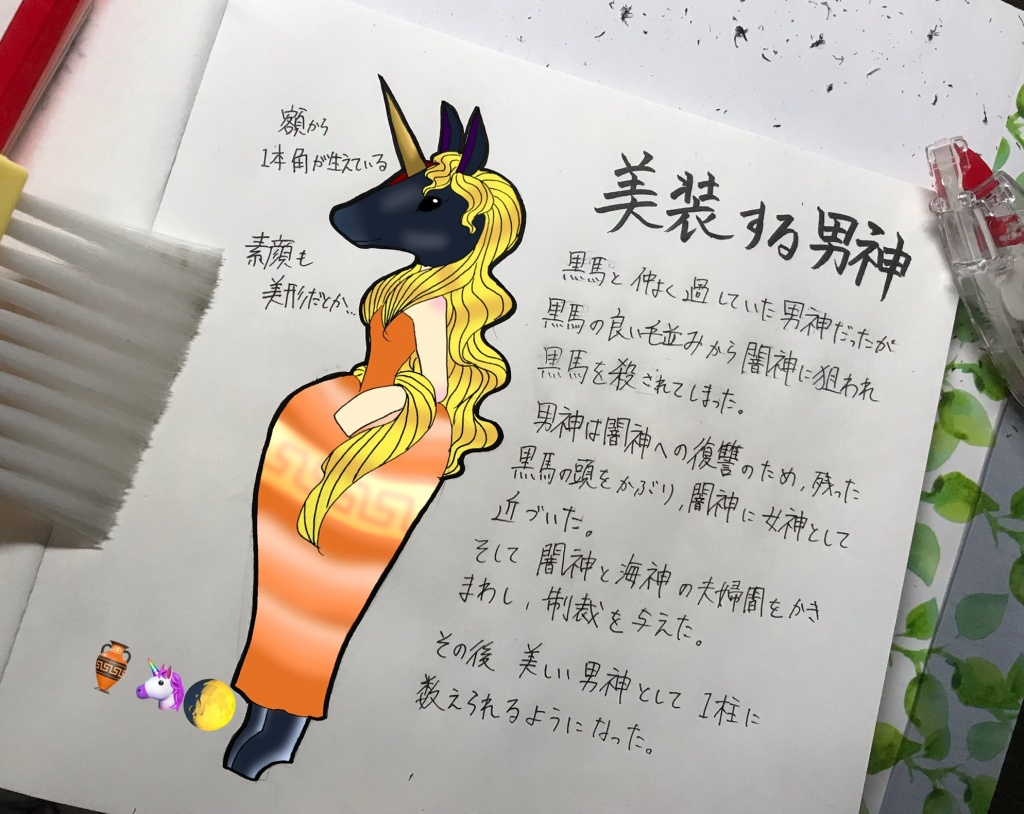 額から
1本角が生えている
素顔も
美形だとか…
美装する男神
黒馬と仲よく過していた男神だったが
黒馬の良い毛並みから闇神に狙われ
黒馬を殺されてしまった。
男神は闇神への復讐のため,残った
黒馬の頭をかぶり,闇神に女神として
近づいた。
そして闇神と海神の夫婦間をかき
まわし,制裁を与えた。
その後 美しい男神として1柱に
数えられるようになった。